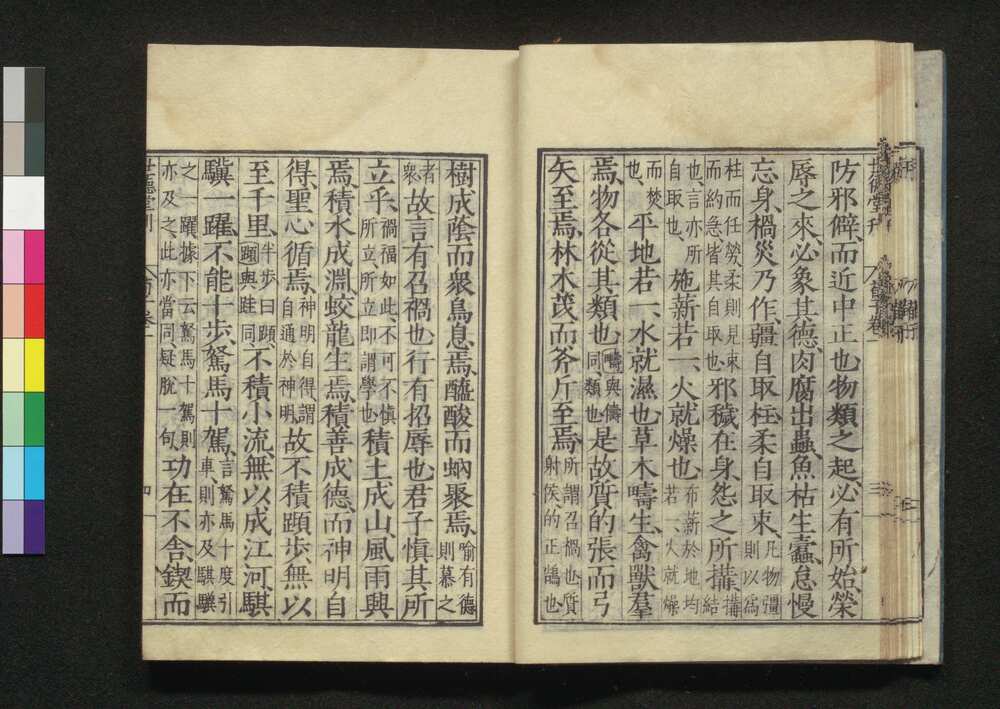 防邪僻、而近中正也、物類之起、必有所始、榮
辱之來、必象其德、肉腐出蟲、魚枯生蠹、怠慢
忘身、禍災乃作、彊自取柱、柔自取束、凡物彊則以爲
柱而任勞、柔則見束而約急、皆其自取也、邪穢在身、怨之所搆、搆結
也、言亦所自取也、施薪若一、火就燥也、布薪於地均若一、火就燥
而焚也、平地若一、水就濕也、草木疇生、禽獸羣
焉、物各從其類也、疇與儔同、類也、是故質的張而弓
矢至焉、林木茂而斧斤至焉、所謂召禍也、質射侯的正鵠也
樹成蔭而衆鳥息焉、醯酸而蜹聚焉、喻有德則慕之
者衆、故言有召禍也、行有招辱也、君子愼其所
立乎、禍福如此、不可不愼所立、所立即謂學也、積土成山、風雨興
焉、積水成淵、蛟龍生焉、積善成德、而神明自
得、聖心循焉、神明自得、謂自通於神明、故不積蹞步、無以
至千里、半步曰蹞、蹞與跬同、不積小流、無以成江河、騏
驥一躍、不能十步、駑馬十駕、言駑馬十度引車、則亦及騏驥
之一躍、據下云駑馬十駕則亦及之、此亦當同、疑脫一句、功在不舍、鍥而
世德堂刊
四